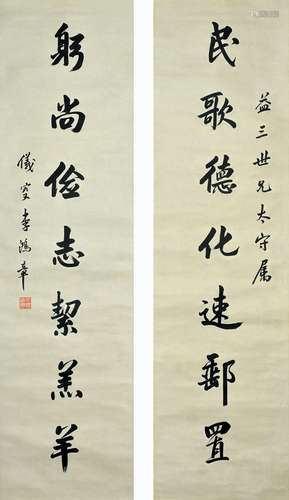 益三世兄太守属
民歌德化速郵置
躬尚俭志絜羔羊
儀叟李鴻章